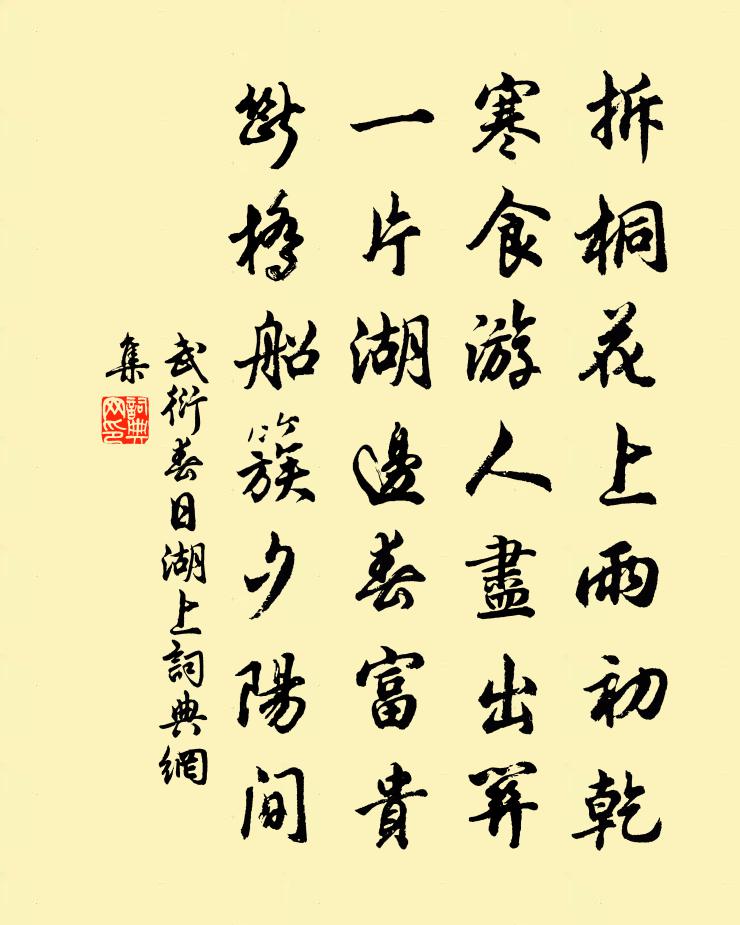 拆桐花上雨初乾
寒食游人盡出關
一片湖邊春富貴
斷橋船簇夕陽間
武衍春日湖上詞典網
集
詞典網印